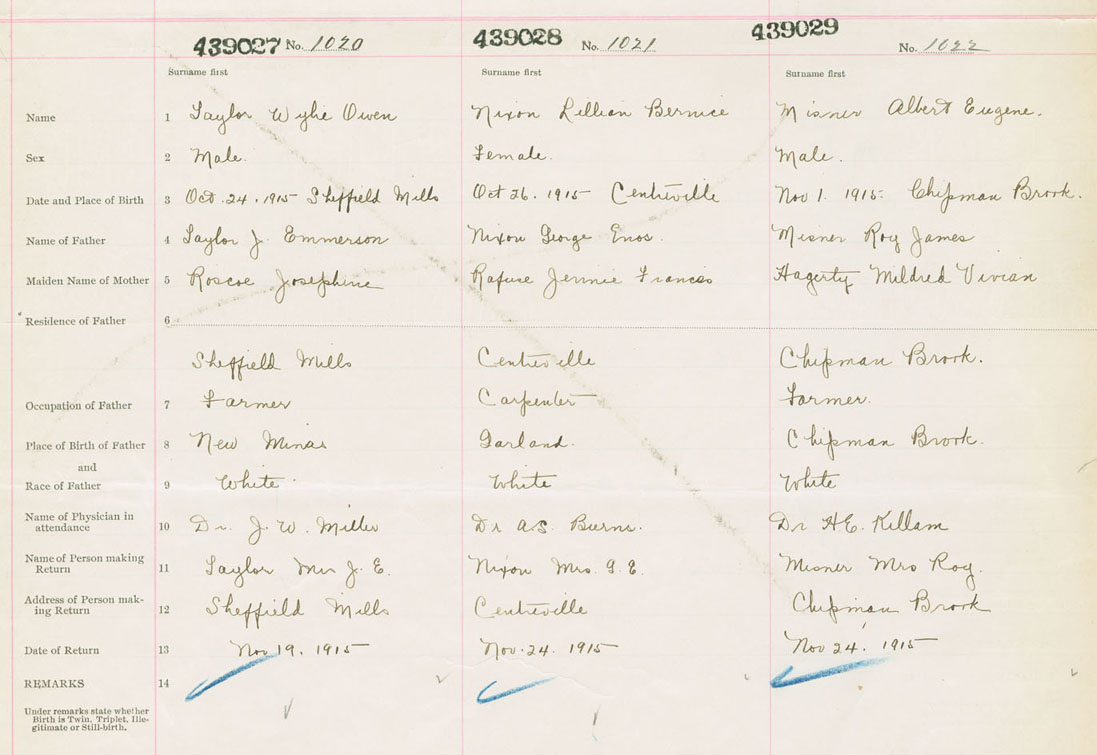 439027 No. 1020 439028 No. 1021 439029 No. 1022
Surname first Surname first Surname first
Name 1 Taylor Wylie Owen Nixon Lillian Bernice Misner Albert Eugene.
Sex 2 Male. Female. Male.
Date and Place of Birth 3 Oct. 24. 1915 Sheffield Mills Oct 26. 1915 Centreville Nov 1. 1915. Chipman Brook.
Name of Father 4 Taylor J. Emmerson Nixon George Enos. Misner Roy James
Maiden Name of Mother 5 Roscoe Josephine Rafuse Jennie Frances Hagerty Mildred Vivian
Residence of Father 6
Sheffield Mills Centreville Chipman Brook.
Occupation of Father 7 Farmer Carpenter Farmer.
Place of Birth of Father 8 New Minas Garland. Chipman Brook.
and
Race of Father 9 White White White
Name of Physician in
attendance 10 Dr. J. W. Miller Dr A.S. Burns. Dr H.E. Killam
Name of Person making
Return 11 Taylor Mrs J. E. Nixon Mrs. G. E. Misner Mrs Roy.
Address of Person mak-
ing Return 12 Sheffield Mills Centreville Chipman Brook
Date of Return 13 Nov 19. 1915 Nov. 24. 1915 Nov 24. 1915
REMARKS 14
Under remarks state whether
Birth is Twin, Triplet, Ille-
gitimate or Still-birth.